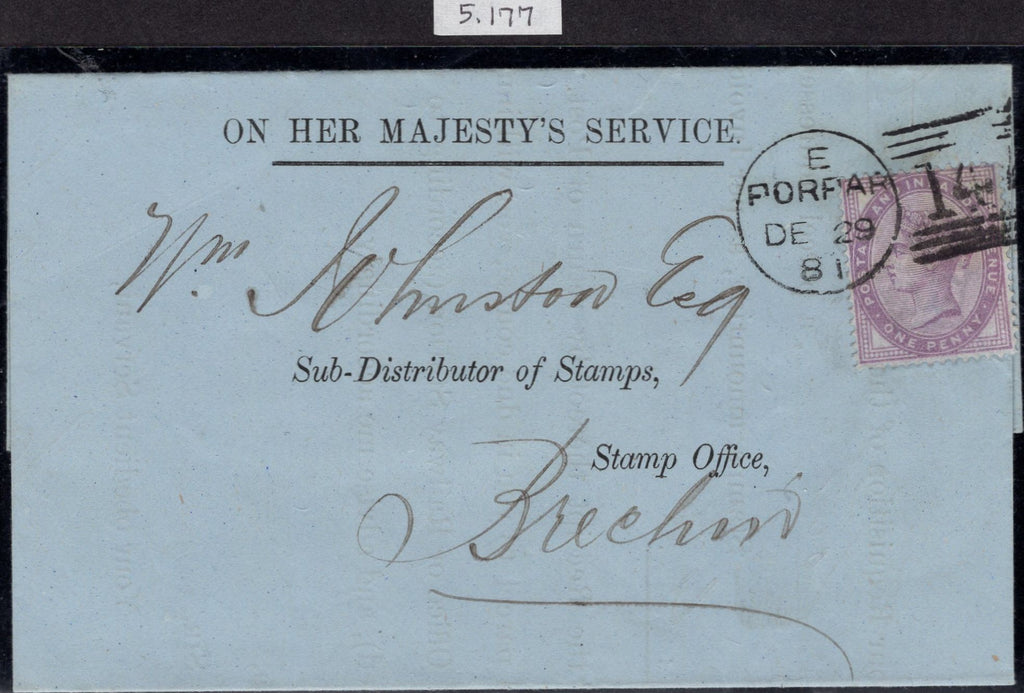 5.177
ON HER MAJESTY'S SERVICE.
Wm Johnston Esq
Sub-Distributor of Stamps,
Stamp Office,
Brechin
E
FORFAR
DE 29
81
14
POSTAGE AND INLAND REVENUE
ONE PENNY